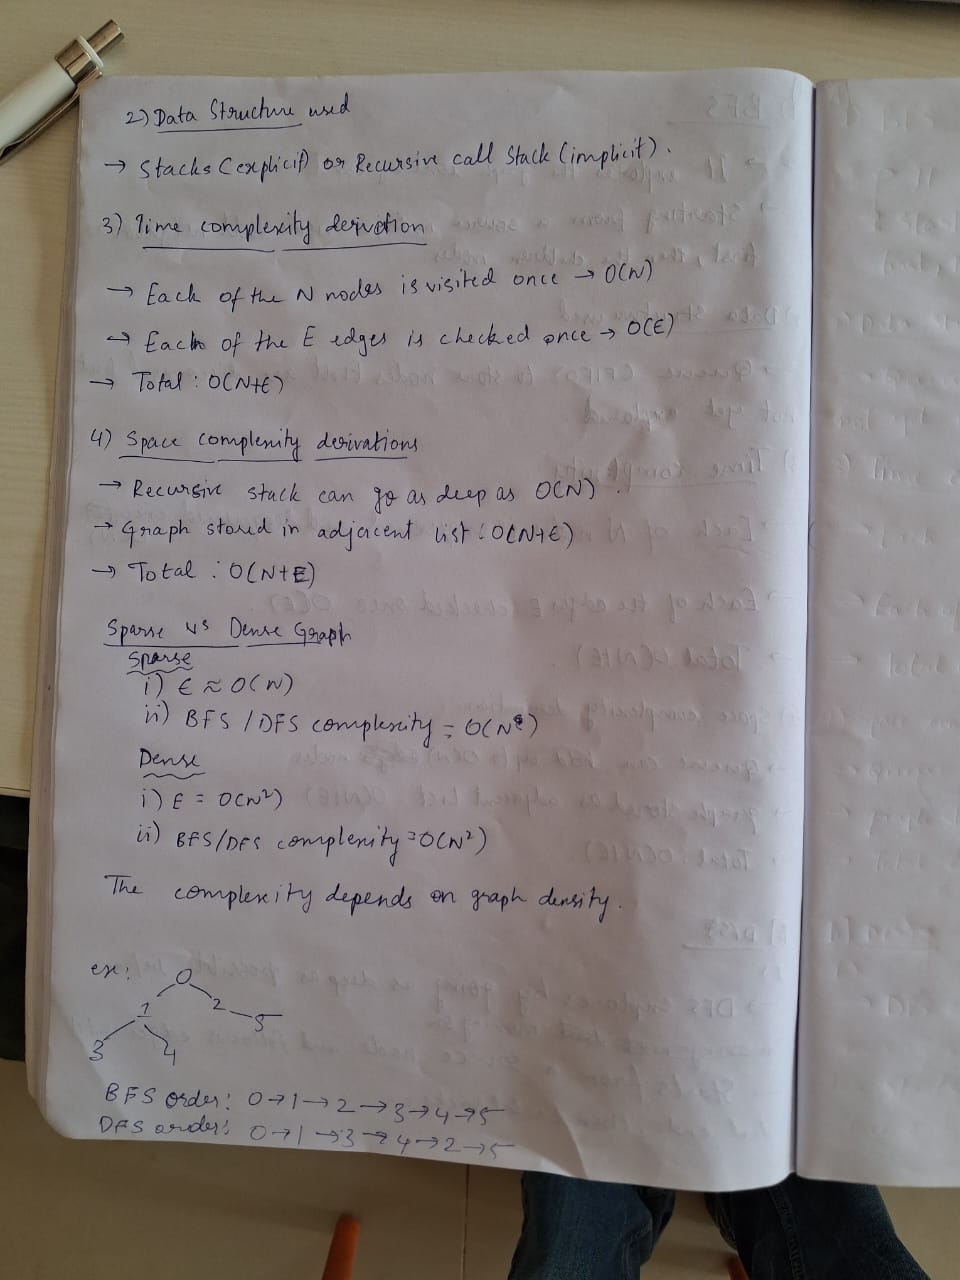 2) Data Structure used
→ Stacks (explicit) or Recursive call Stack (implicit).
3) Time complexity derivation
→ Each of the N nodes is visited once → O(N)
→ Each of the E edges is checked once → O(E)
→ Total : O(N+E)
4) Space complexity derivations
→ Recursive stack can go as deep as O(N).
→ Graph stored in adjacent list : O(N+E)
→ Total : O(N+E)
Sparse vs Dense Graph
Sparse
i) E ≈ O(N)
ii) BFS / DFS complexity = O(N)
Dense
i) E = O(N²)
ii) BFS/DFS complexity = O(N²)
The complexity depends on graph density.
ex:
0
1 2
3 4 5
BFS order: 0→1→2→3→4→5
DFS order: 0→1→3→4→2→5